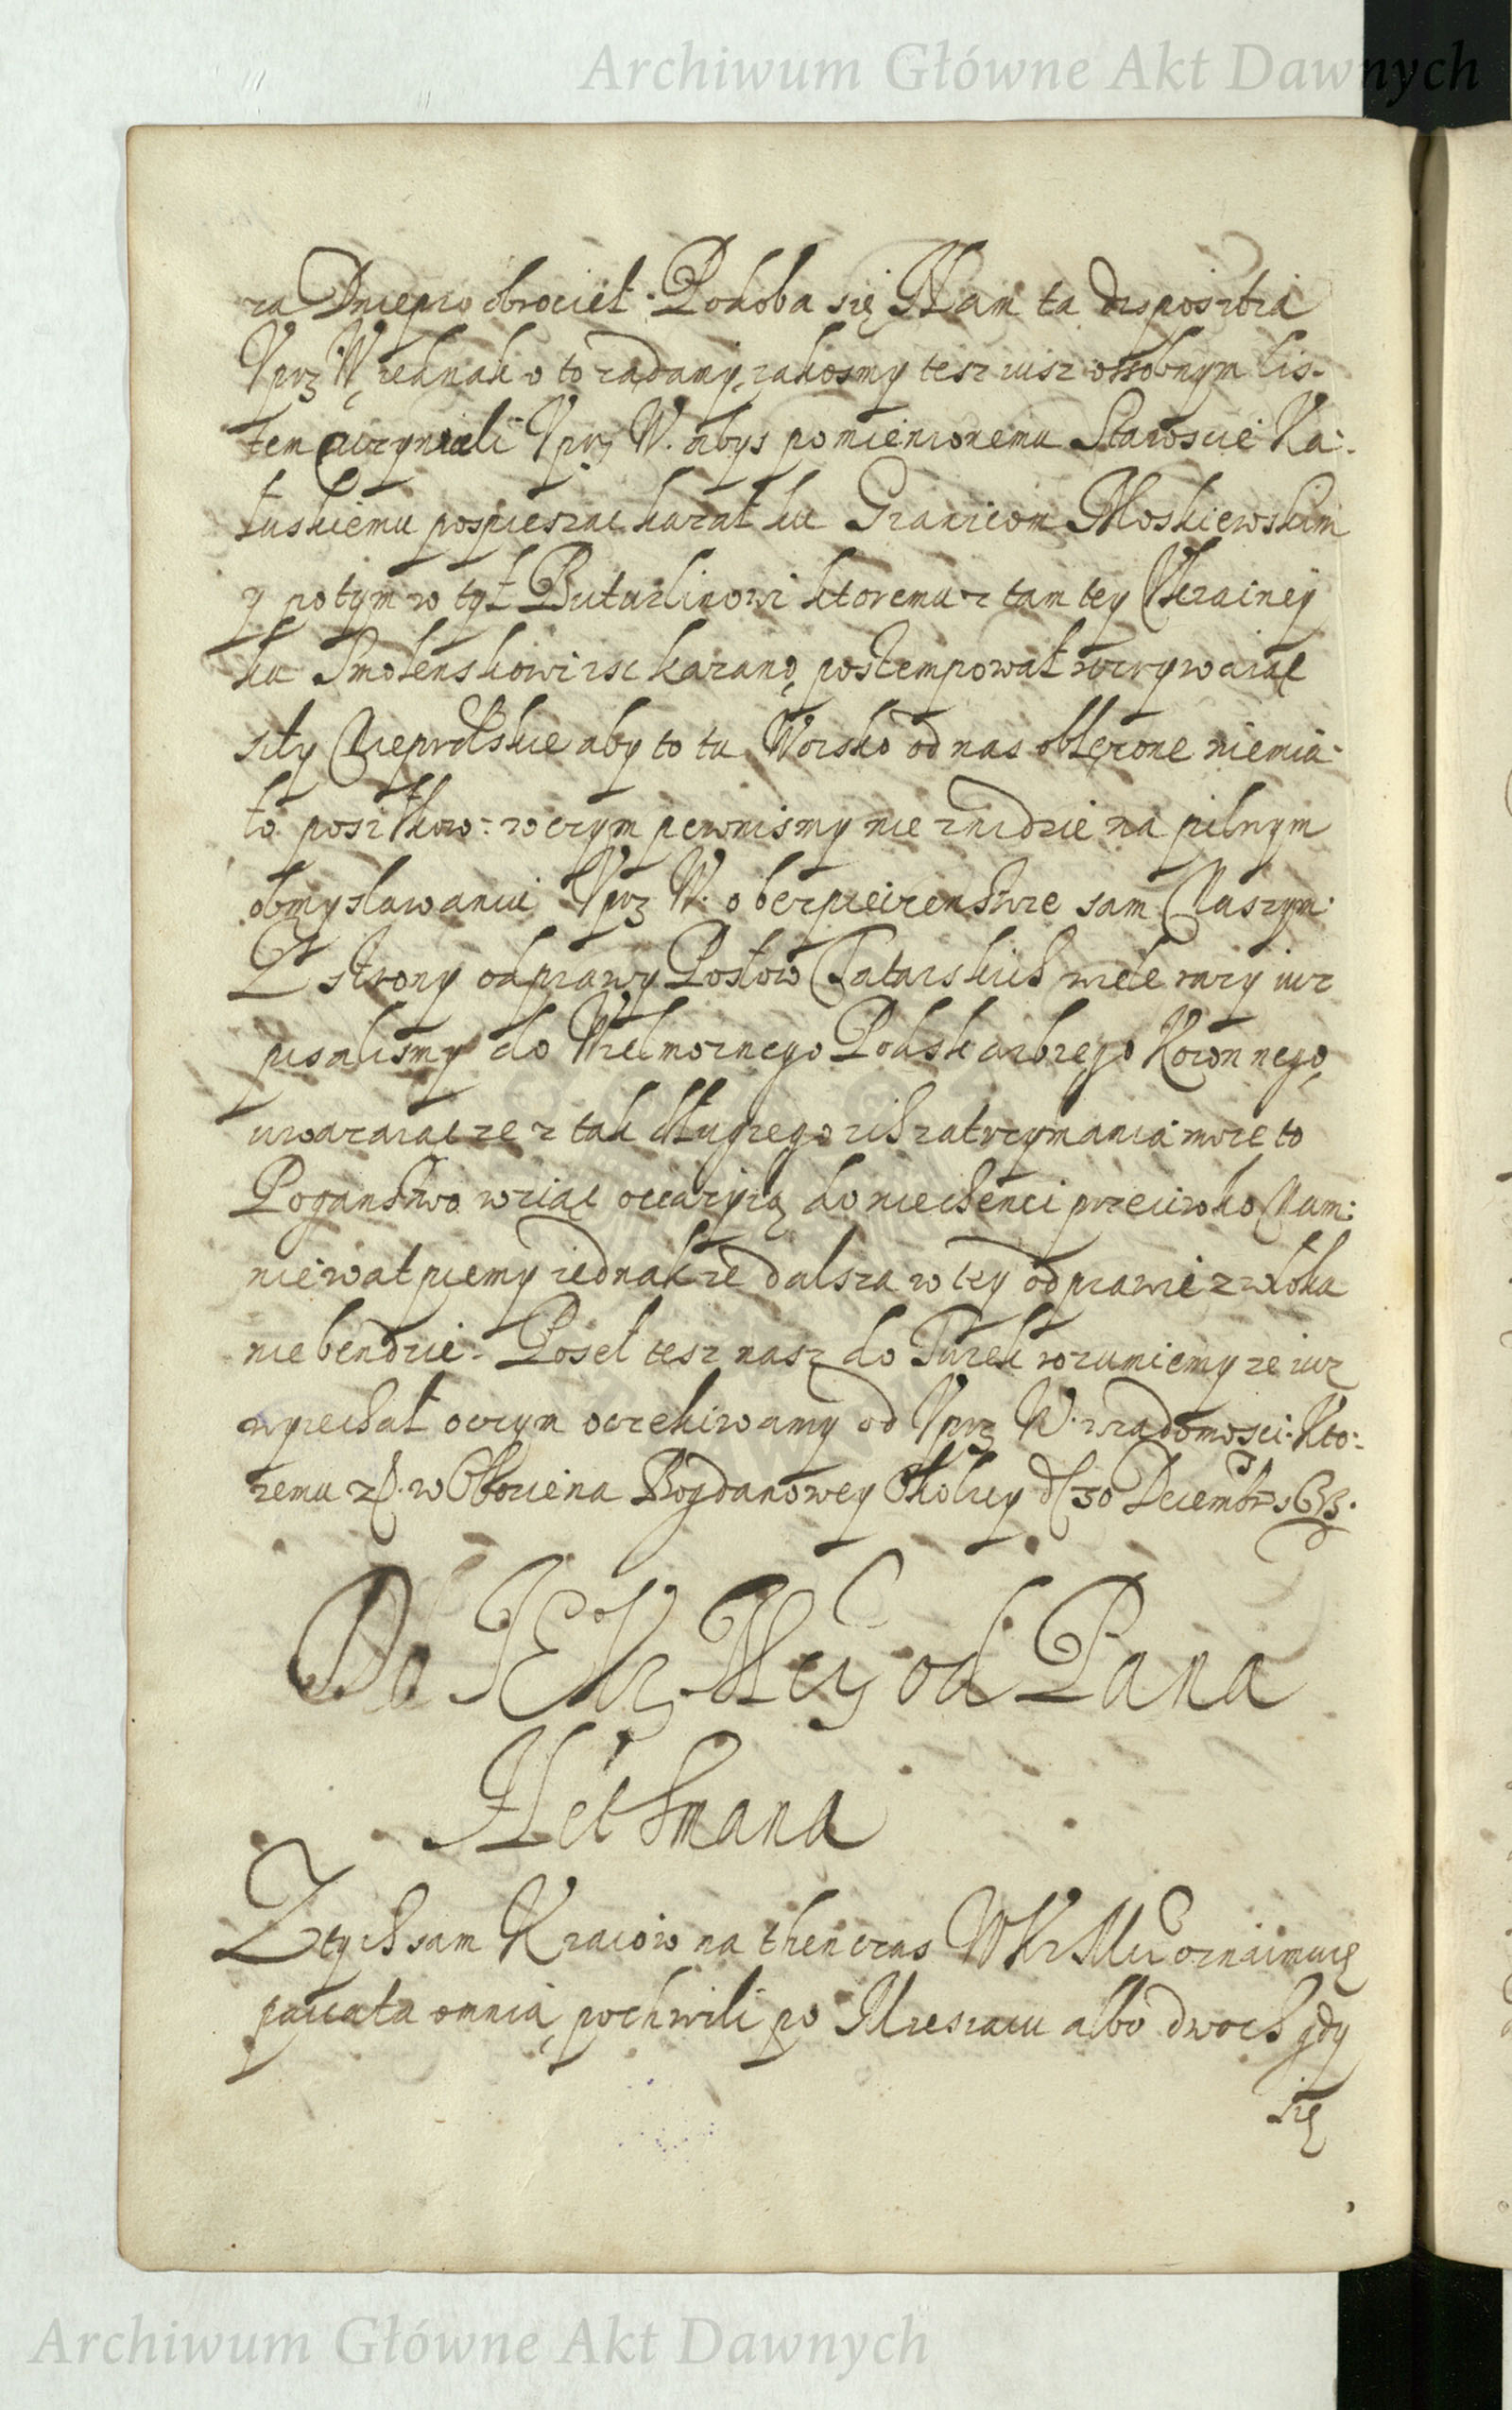 Archiwum Główne Akt Dawnych
za Dniepr obrocieł. Podoba się Nam ta disposicia
Vprz W. iednak o to ządamy, iakosmy tesz iusz ossobnym lis-
tem uczynieli Vprz W. abys pomienionemu Staroscie Ka-
łuskiemu pospieszac kazał ku Granicom Moskiewskim
y potym w tył Buturlinowi ktoremu z tam tey Vkrainey
ku Smolenskowi isc kazano, postempował rozrywaiąc
siły Nieprzłskie aby to tu Woisko od nas oblężone niemia-
ło posiłkow: w czym pewnismy nie znidzie na pilnym
obmyslawaniu Vprz W. o bezpieczenstwie sam Naszym.
Z strony odprawy Posłow Tatarskich wiele razy iuz
pisalismy do Wielmoznego Podskarbiego Koronnego,
uwazaiąc ze z tak długiego ich zatrzymania moze to
Poganstwo wziąc occasyią do niechenci przeciwko Nam:
niewatpiemy iednak ze dalsza w tey odprawie zwłoka
niebendzie. Poseł tesz nasz do Turek rozumiemy ze iuz
wyiechał oczym oczekiwamy od Vprz W. wiadomosci. Kto-
remu zd. w Obozie na Bogdanowey Okolicy d 30 Decembr 1633.
Do JEKr Mci od Pana
Hethmana
Z tych sam Kraiow na then czas WKr Mci oznaimuię
paccata omnia, pochwili po Miesiacu albo dwoch gdy
się
Archiwum Główne Akt Dawnych